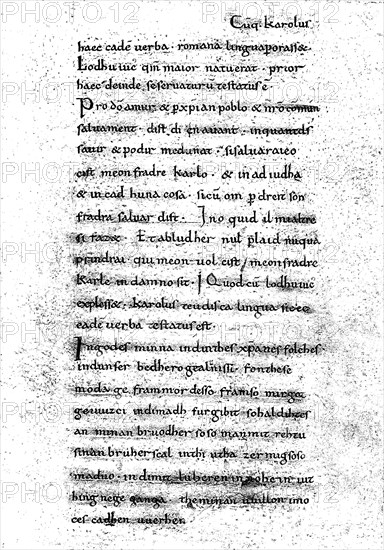 Cūq. karolus
haec eadē verba. romana lingua porasse&.
Lodhuuic qm̄ maior natu erat. prior
haec deinde se seruaturū testatus ē.
Pro dō amur & p xpian poblo & nr̄o cōmun
saluament. dist di en auant. inquantds
sauir & podir medunat. sisaluaraieo
cist meon fradre karlo. & in ad iudha
& in cad huna cosa. sicū om p dreit son
fradra saluar dist. Ino quid il mialtre
si faz&. Et abludher nul plaid nūqua
prindrai. qui meon uol cist meonfradre
karle in damno sit. Quod cū lodhuuic
expless&. karolus teudisca lingua sic ec
eadē verba testatus est.
Ingodes minna indinthes xpanes folches
indunser bedhero gealtnissi. fonthese
moda ge frammordesso framso mirgot
geuuizci indimadh furgibit sohaldihtes
an minan bruodher soso manmit rehtu
sinan bruher scal inthi utha zermigsoso
maduo. indimit luheren in nohe in iut
hing nege ganga. theminan uuillon imo
ces cadhen uuerhen.